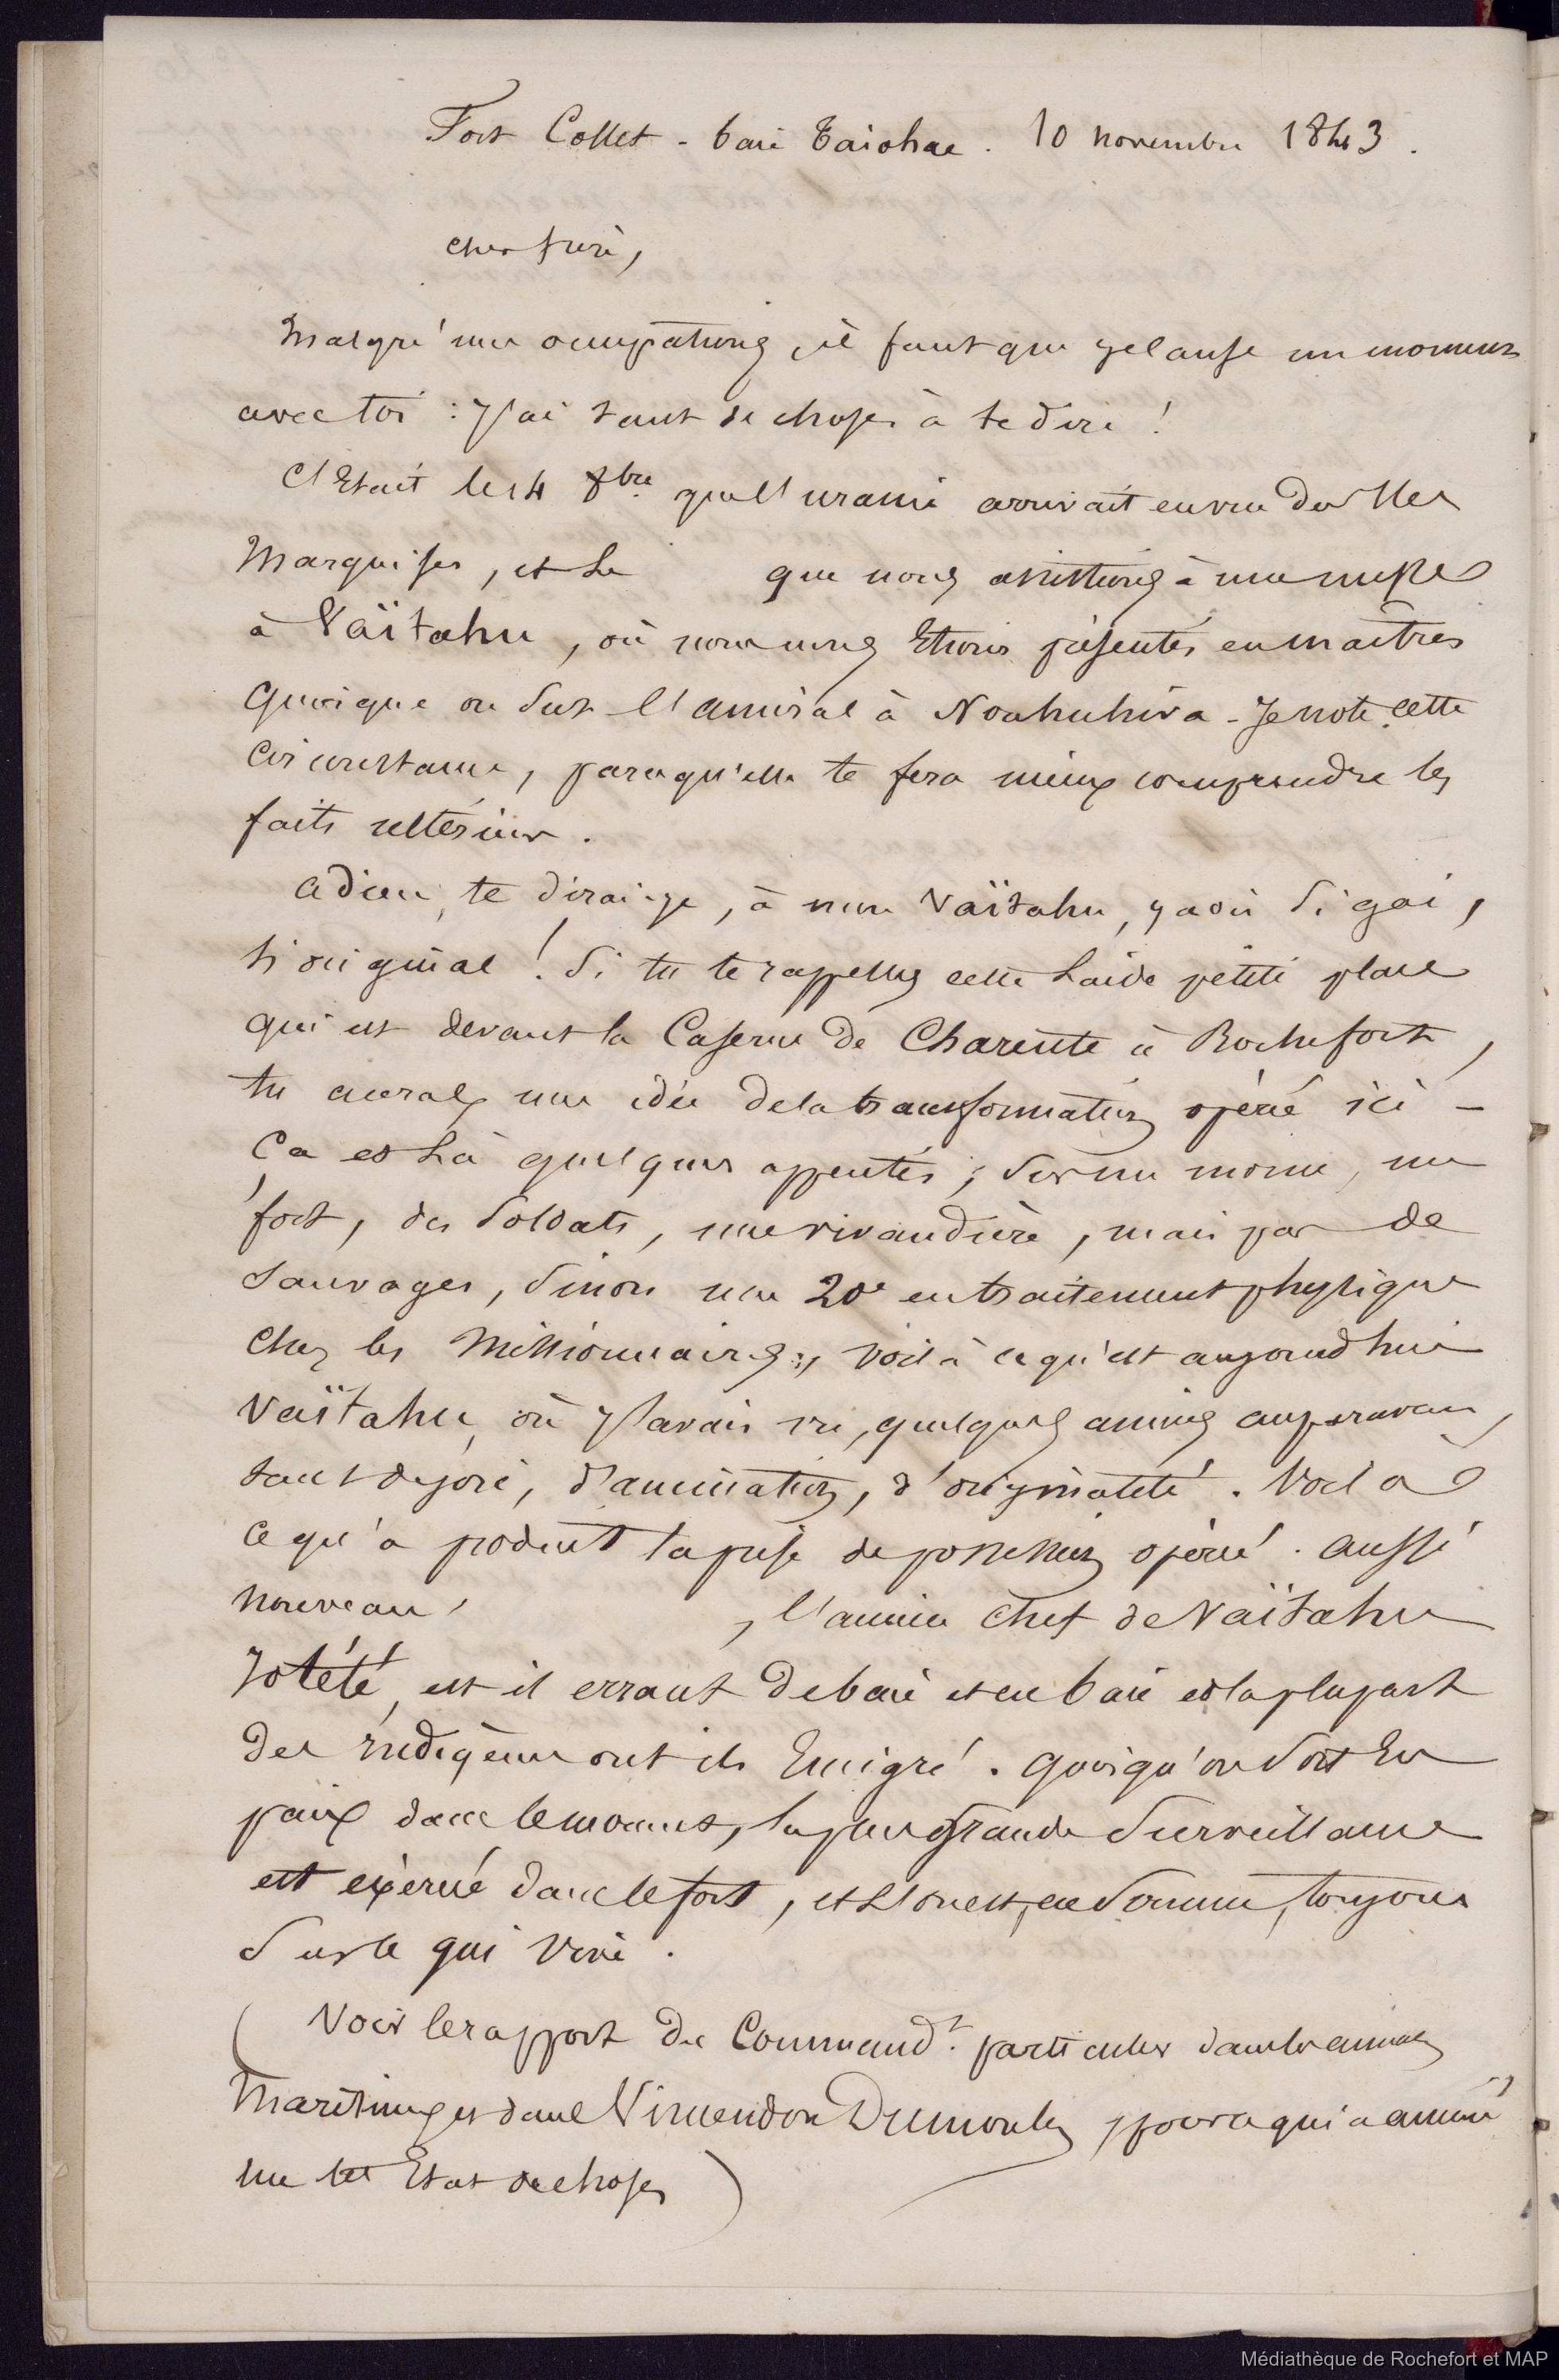 Fort Collet - baie Taiohae. 10 novembre 1843.
cher frère,
Malgré mes occupations, il faut que je cause un moment
avec toi : j'ai tant de choses à te dire !
C'Etait le 14 8bre que l'uranie arrivait en vue des Iles
Marquises, et le que nous assistions à une messe
à Vaïtahu, où nous nous Etions présentés en maîtres
quoique on sut l'amiral à Nouhuhiva - Je note cette
circonstance, parcequ'elle te fera mieux comprendre les
faits ultérieurs.
adieu, te dirai-je, à mon Vaïtahu, jadis si gai,
si original ! Si tu te rappelles cette laide petite place
qui est devant la Caserne de Charente à Rochefort,
tu auras une idée de la transformation opérée ici -
Ca et là quelques appentis ; sur un morne, un
fort, des soldats, une vivandière, mais pas de
sauvages, sinon une 20e en traitement physique
chez les Missionnaires ; voilà ce qu'est aujourd'hui
Vaïtahu, où j'avais vu, quelques années auparavant,
tant de joie, d'animation, d'originalité. Voilà
ce qu'a produit la prise de possession opérée. aussi
nouveau , l'ancien chef de Vaïtahu
Iotété, est il errant de baie et en baie et la plupart
des indigènes ont ils Emigré. quoiqu'on soit En
paix dans le moment, la plus grande surveillance
est exercée dans le fort, et l'on est, en somme, toujours
sur le qui vive.
(Voir le rapport du Commandt. particulier dans les annales
Maritimes et dans Vincendon Dumoulin, pour ce qui a amené
un tel Etat de choses)
Médiathèque de Rochefort et MAP